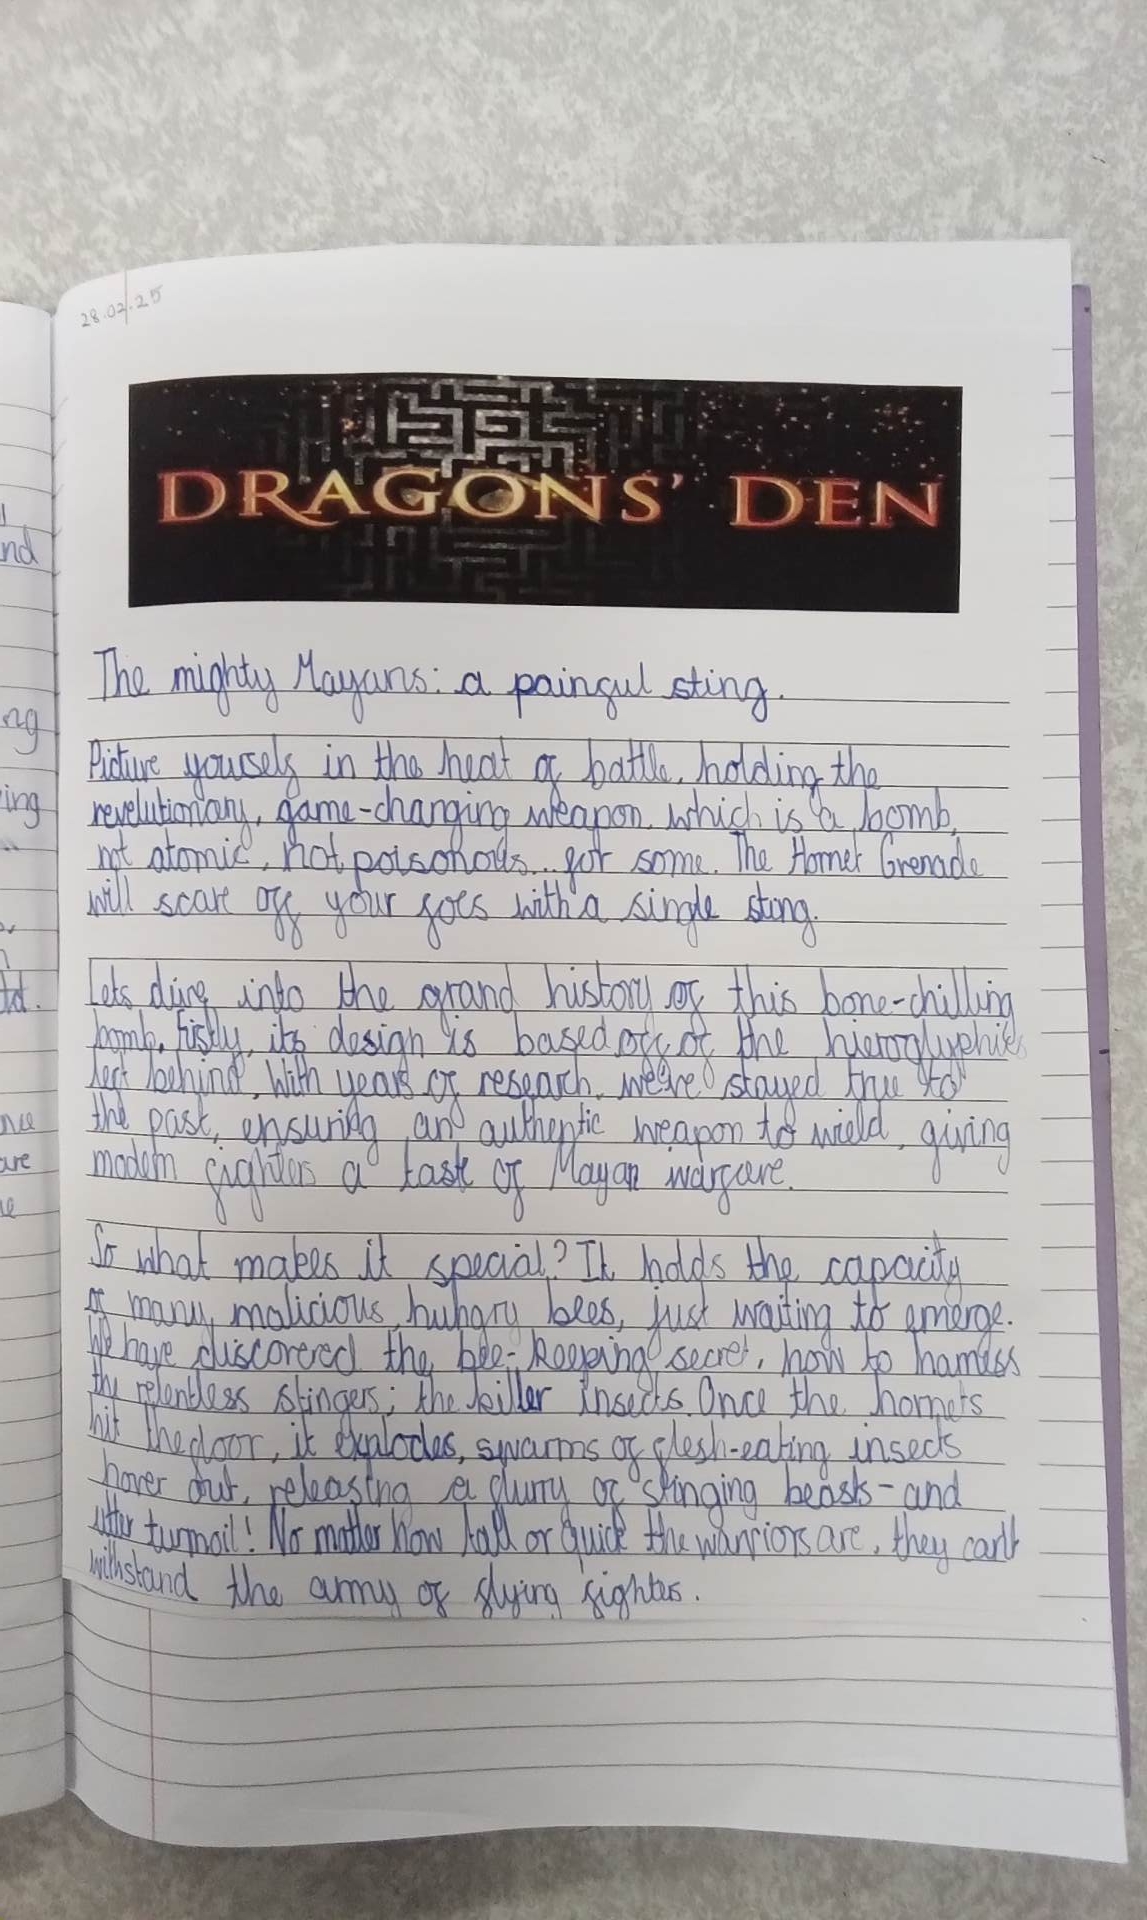 28.02.25
DRAGONS' DEN
The mighty Mayans: a painful sting.
Picture yourself in the heat of battle, holding the
revelutionary, game-changing weapon, which is a bomb,
not atomic, not poisonous... for some. The Hornet Grenade
will scare off your foes with a single sting.
Lets dive into the grand history of this bone-chilling
bomb. Fistly, its design is based off of the hieroglyphics
left behind. With years of research, we've stayed true to
the past, ensuring an authentic weapon to wield, giving
modern fighters a taste of Mayan warfare.
So what makes it special? It holds the capacity
of many malicious, hungry bees, just waiting to emerge.
We have discovered the bee-keeping secret, how to harness
the relentless stingers; the killer insects. Once the hornets
hit the floor, it explodes, swarms of flesh-eating insects
hover out, releasing a flurry of stinging beasts - and
utter turmoil! No matter how tall or quick the warriors are, they can't
withstand the army of flying fighters.
nd
ng
ing